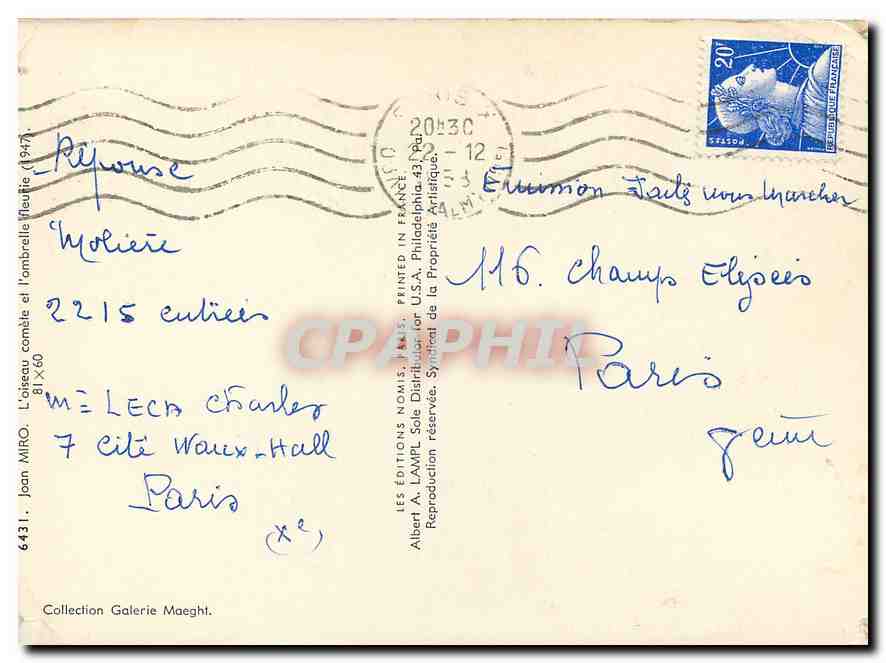 20F
RÉPUBLIQUE FRANÇAISE
POSTES
20H30
12
Réponse
Molière
2215 entrées
Me LECA Charles
7 Cité Waux-Hall
Paris
(Xe)
Emission vous marcher
116. Champs Elysées
Paris
8eme
6431. Joan MIRO. L'oiseau comète et l'ombrelle fleurie (1947).
81×60
Collection Galerie Maeght.
LES ÉDITIONS NOMIS, PARIS. PRINTED IN FRANCE.
Albert A. LAMPL Sole Distributor for U.S.A. Philadelphia 43, Pa.
Reproduction réservée. Syndicat de la Propriété Artistique.
CPAPHIL